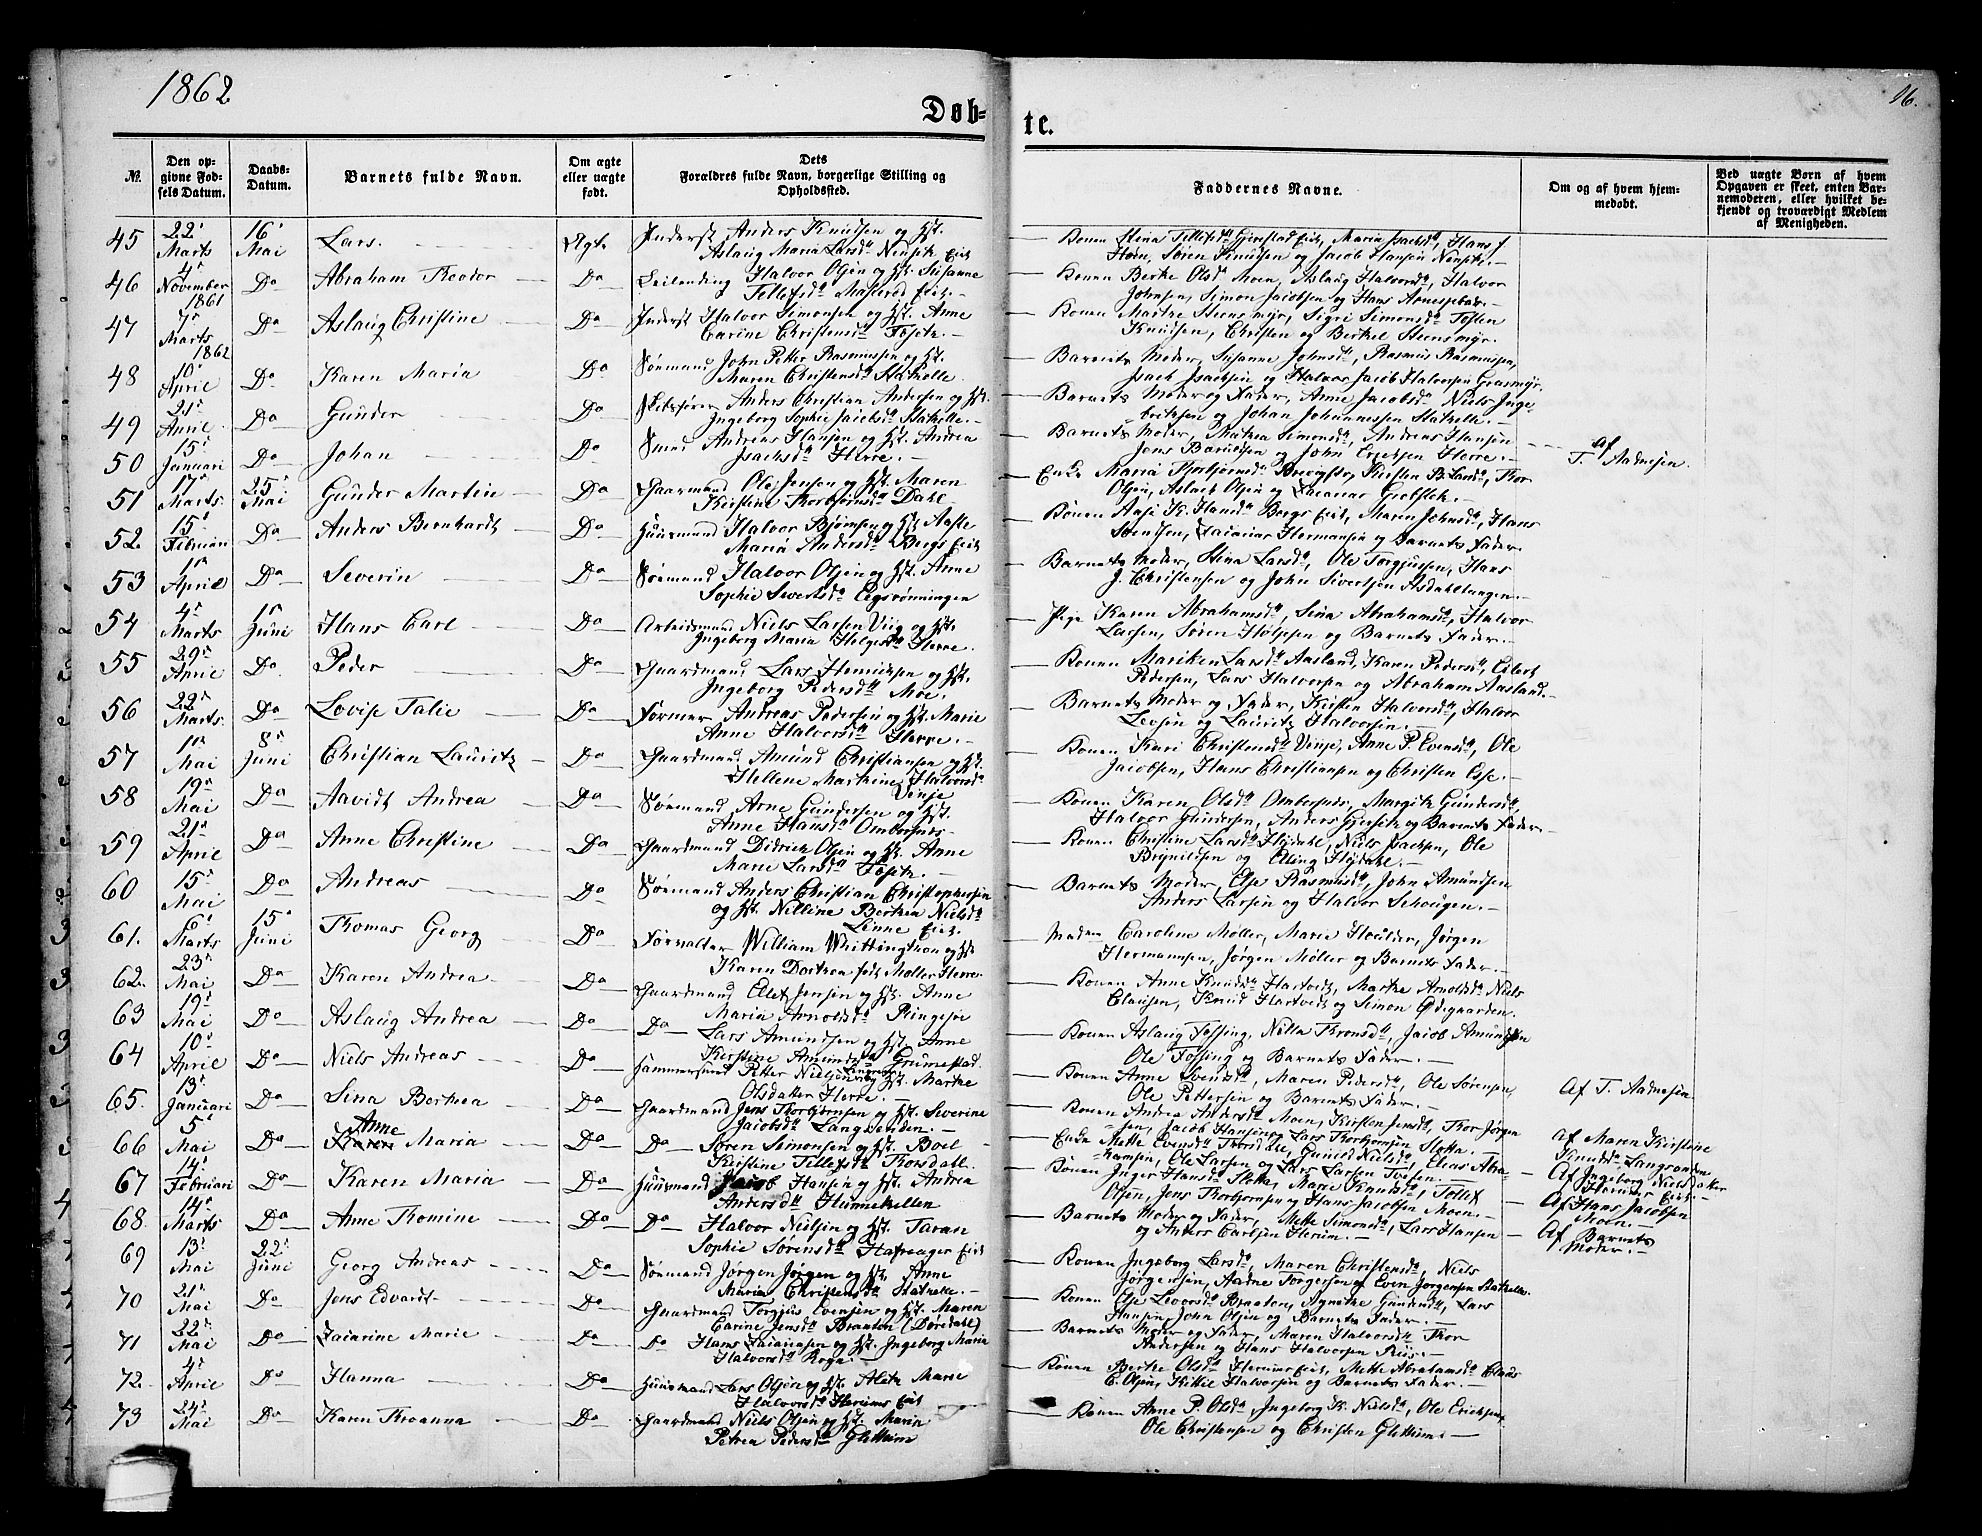 1862
16.
Døb-
te.
№.
Den op-
givne Fød-
sels Datum.
Daabs-
Datum.
Barnets fulde Navn.
Om ægte
eller uægte
født.
Dets
Forældres fulde Navn, borgerlige Stilling og
Opholdssted.
Faddernes Navne.
Om og af hvem hjem-
medøbt.
Ved uægte Børn af hvem
Opgaven er skeet, enten Bar-
nemoderen, eller hvilket be-
kjendt og troværdigt Medlem
af Menigheden.
45 22' Marts 16' Mai Lars. Ægte Inderst Anders Knudsen og Hst.
Aslaug Maria Larsd. Eiet
— Konen Stina Tellefsd. Gjerestad Eiet, Maria Isachsd., Hans J.
Søren Knudsen og Jacob Hansen
46 4' November 1861 Do Abraham Theodor Do Leilending Halvor Olsen og Hst. Susanne
Tellefsd. Eiet.—
— Konen Berthe Olsd. Moen, Aslaug Halvorsd., Halvor
Johnsen, Simon Jacobsen og Hans
47 7' Marts 1862 Do Aslaug Christine Do Inderst Halvor Simonsen og Hst. Anne
Carine Christensd. Tositz.—
— Konen Marthe Steensmyr, Sigri Simonsd. Tosten
Knudsen, Christen og Berthel Steensmyr.
48 10' April Do Karen Maria Do Sømand John Petter Rasmussen og Hst.
Maren Christensd. Stathelle.
— Barnets Moder, Susanne Johnsd., Rasmus Rasmussen,
Isach Isachsen og Halvor Jacob Halvorsen Grasmyr.
49 21' April Do Gunder Do Skibsfører Anders Christian Andersen og Hst.
Ingeborg Sophie Jacobsd. Stathelle.—
— Barnets Moder og Fader, Anne Jacobsd. Niels Inge-
britsen og Johan Johannessen Stathelle.—
50 15' Januari Do Johan Do Smed Andreas Hansen og Hst. Andrea
Isachsd. Herre.—
— Barnets Moder, Mathea Simonsd., Andreas Hansen
Jens og John Ericksen Herre.—
af
T. Aadnesen.
51 17' Marts 25' Mai Gunder Martin Do Gaardmand Ole Jensen og Hst. Maren
Kirstine Thorbjørnsd. Dahl
— Enke Maria Thorbjørnsd. Kirsten B. Larsd., Thor
Olsen, Aslack Olsen og Zacarias
52. 15' Februari Do Anders Bernhardt Do Huusmand Halvor Bjørnsen og Hst. Aaste
Maria Andersd. Bergs Eiet
— Konen Aase K. Hansd. Bergs Eiet, Maren Johnsd., Hans
Zacarias Hermansen og Barnets Fader.
53 1' April Do Severin Do Sømand Halvor Olsen og Hst. Anne
Sophie Sivertsd. Eegsrønningen
— Barnets Moder, Stina Larsd., Ole Torgjussen, Hans
J. Christensen og John Sivertsen Asdahltangen.—
54 4' Marts 1' Juni Hans Carl Do Arbeidsmand Niels Larsen Viig og Hst.
Ingeborg Maria Helgesd. Herre.
— Pige Karen Abrahamsd., Sina Abrahamsd., Halvor
Larsen, Søren og Barnets Fader.—
55 29' April Do Peder Do Gaardmand Lars Henricksen og Hst.
Ingeborg Pedersd. Moe.
— Konen Mariken Larsd. Aasland, Karen Pedersd., Eilert
Pedersen, Lars Halvorsen og Abraham Aasland.—
56 22' Marts Do Lovise Talie Do Former Andreas Pedersen og Hst. Marie
Anne Halvorsd. Herre.—
— Barnets Moder og Fader, Kirsten Halvorsd., Halvor
Levsen og Lauritz Halvorsen.—
57 1' Mai 8' Juni Christian Lauritz Do Gaardmand Amund Christiansen og Hst.
Hellene Marthine Halvorsd.
Vinje
— Konen Kari Christensd. Vinje, Anne P. Evensd., Ole
Jacobsen, Hans Christiansen og Christen
58 19' Mai Do Aavidt Andrea Do Sømand Arne Gundersen og Hst.
Anne Hansd. Ombersnes
— Konen Karen Olsd. Ombersnes, Margith Gundersd.,
Halvor Gundersen, Anders og Barnets Fader—
59 21' April Do Anne Christine Do Gaardmand Didrich Olsen og Hst. Anne
Marie Larsd. Tositz.—
— Konen Christine Larsd. Niels Isachsen, Ole
Brynildsen og
60 15' Mai Do Andreas Do Sømand Anders Christian Christophersen
og Hst. Nilline Berthea Nielsd.
Linne Eiet.
— Barnets Moder, Else Rasmusd., John Amundsen
Anders Larsen og Halvor Schougen.—
61. 6' Marts 15' Juni Thomas Georg Do Forvalter William Whittingthon og Hst
Karen Dorthea født Møller Herre.
— Madm Caroline Møller, Marie Houlder, Jørgen
Hermansen, Jørgen Møller og Barnets Fader.—
62. 23' Mai Do Karen Andrea Do Gaardmand Jensen og Hst. Anne
Maria Arnoldsd. Ringesje
— Konen Anne Knudsd. Hartvedt, Marthe Arnoldsd. Niels
Clausen, Knud Hartvedt og Simon Ødegaarden.
63 19' Mai Do Aslaug Andrea Do Do Lars Amundsen og Hst. Anne
Kirstine Amundsd. Grummestad.
— Konen Aslaug Tossing, Nella Jacob Amundsen
Ole Tossing og Barnets Fader.—
64 10' April Do Niels Andreas Do Hammersmed Petter Nielsen og Hst. Marthe
Olsdatter Herre.—
— Konen Anne Svendsd., Maren Pedersd., Ole Sørensen,
Ole Pettersen og Barnets Fader.—
Af T. Aadnesen
65. 13' Januari Do Sina Berthea Do Gaardmand Jens Thorbjørnsen og Hst. Severine
Jacobsd. Langsanden.—
— Konen Andrea Andersd. Moen, Kirsten Jensd., Thor Jørgen-
sen, Jacob Hansen og Lars Thorbjørnsen Slotta.—
Af Maren Kirstine
Knudsd. Langsanden
66 5' Mai Do Anne Maria Do Do Søren Simonsen og Hst. Boel
Kirstine Tellefsd. Thorsdahl.
— Enke Mette Evensd. Thorsdahl, Gunild Nielsd., Elias Abra-
hamsen, Ole Larsen og Lars Larsen
Af Ingeborg Nielsdatter
Eiet.—
67 14' Februari Do Karen Maria Do Huusmand Jacob Hansen og Hst. Andrea
Andersd. Hunnekellen
— Konen Inger Hansd. Slotta, Marie Knudsd., Tollef
Olsen, Jens Thorbjørnsen og Hans Jacobsen Moen.—
Af Hans Jacobsen
Moen.—
68. 14' Marts Do Anne Thomine Do Do Halvor Nielsen og Hst. Taran
Sophie Sørensd. Hafreager Eiet
— Barnets Moder og Fader, Mette Simonsd., Lars Hansen
og Anders Carlsen Herum.—
Af Barnets
Moder.—
69 13' Mai 22' Juni Georg Andreas Do Sømand Jørgen Jørgen og Hst. Anne
Maria Christensd. Stathelle.—
— Konen Ingeborg Larsd., Maren Christensd., Niels
Jørgensen, Aadne Torgersen og Even Jørgensen Stathelle.
70 21' Mai Do Jens Edvardt Do Gaardmand Torgjus Evensen og Hst. Maren
Carine Jensd. Brauton (Døredahl)
— Konen Else Levorsd. Brauton, Agnethe Gundersd., Lars
Hansen, John Olsen og Barnets Fader.—
71 22' Mai Do Zaiarine Marie Do Do Hans Zaiariasen og Hst. Ingeborg Maria
Halvorsd. Rogn.—
— Barnets Moder og Fader, Maren Halvorsd. Thor
Andersen og Hans Halvorsen Riis.—
72. 4' April Do Hanna Do Huusmand Lars Olsen og Hst. Aleth Marie
Halvorsd. Herums Eiet
— Konen Berthe Olsd. Herums Eiet, Mette Abrahamsd. Claus
E. Olsen, Kittil Halvorsen og Barnets Fader.—
73 24' Mai Do Karen Thoanna Do Gaardmand Niels Olsen og Hst. Maria
Petrea Pedersd. Glettum
— Konen Anne P. Olsd., Ingeborg K. Nielsd., Ole Ericksen,
Ole Christensen og Christen Glettum.—